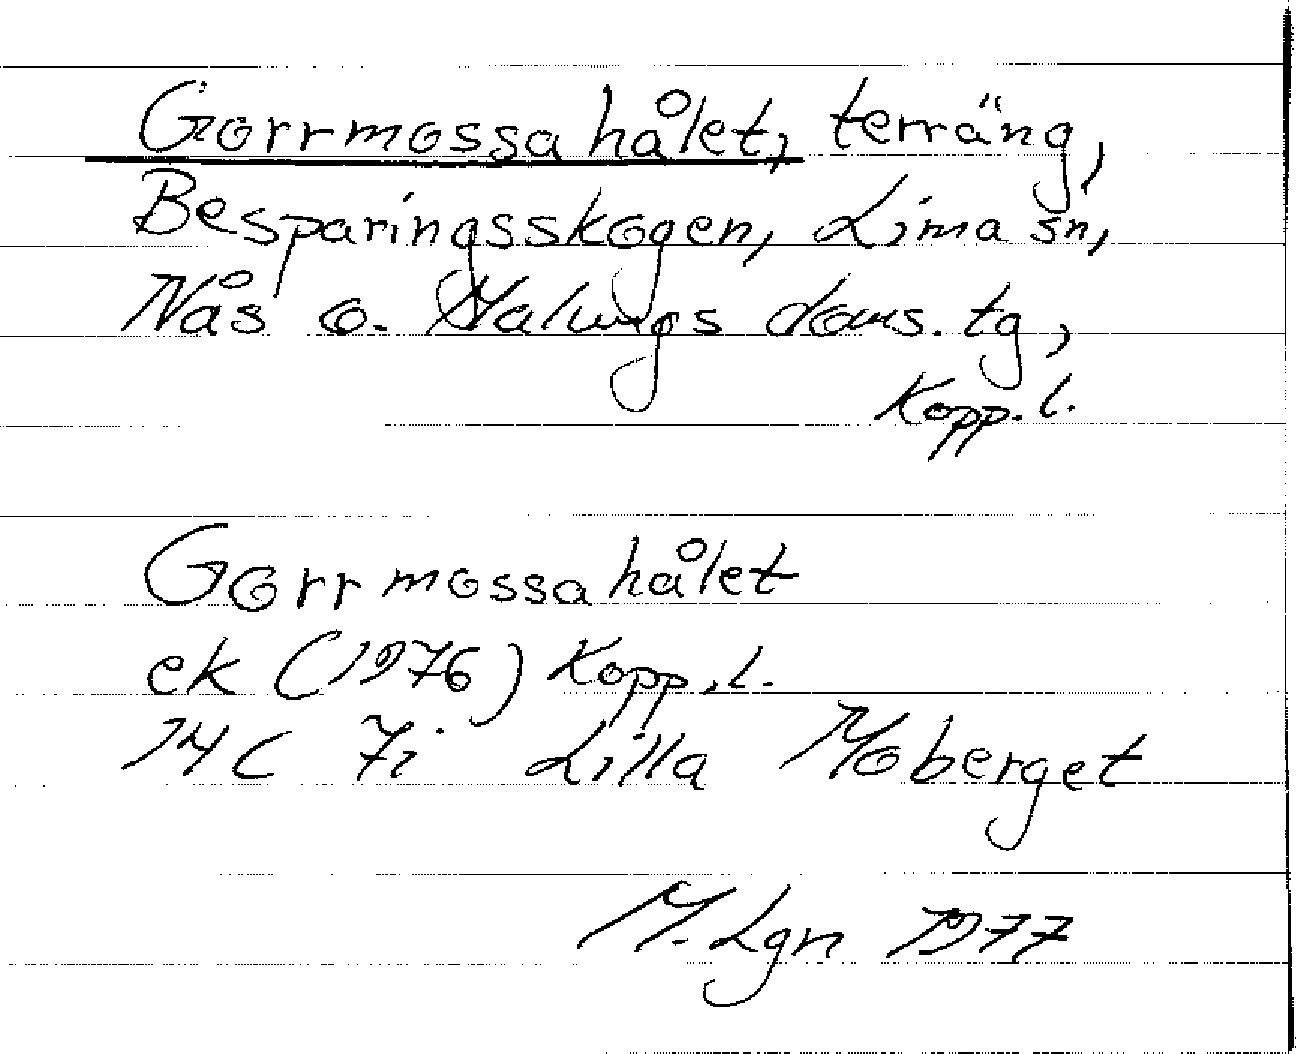 Gorrmossahålet, terräng,
Besparingsskogen, Lima sn,
Nås o. Malungs doms. tg,
Kopp. l.
Gorrmossahålet
ek (1976) Kopp. l.
14C 7i Lilla Moberget
M. Lgn 1977